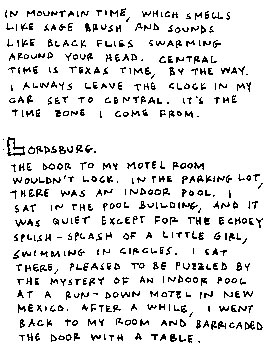 IN MOUNTAIN TIME, WHICH SMELLS
LIKE SAGE BRUSH AND SOUNDS
LIKE BLACK FLIES SWARMING
AROUND YOUR HEAD. CENTRAL
TIME IS TEXAS TIME, BY THE WAY.
I ALWAYS LEAVE THE CLOCK IN MY
CAR SET TO CENTRAL. IT'S THE
TIME ZONE I COME FROM.
LORDSBURG.
THE DOOR TO MY MOTEL ROOM
WOULDN'T LOCK. IN THE PARKING LOT,
THERE WAS AN INDOOR POOL. I
SAT IN THE POOL BUILDING, AND IT
WAS QUIET EXCEPT FOR THE ECHOEY
SPLISH-SPLASH OF A LITTLE GIRL,
SWIMMING IN CIRCLES. I SAT
THERE, PLEASED TO BE PUZZLED BY
THE MYSTERY OF AN INDOOR POOL
AT A RUN-DOWN MOTEL IN NEW
MEXICO. AFTER A WHILE, I WENT
BACK TO MY ROOM AND BARRICADED
THE DOOR WITH A TABLE.